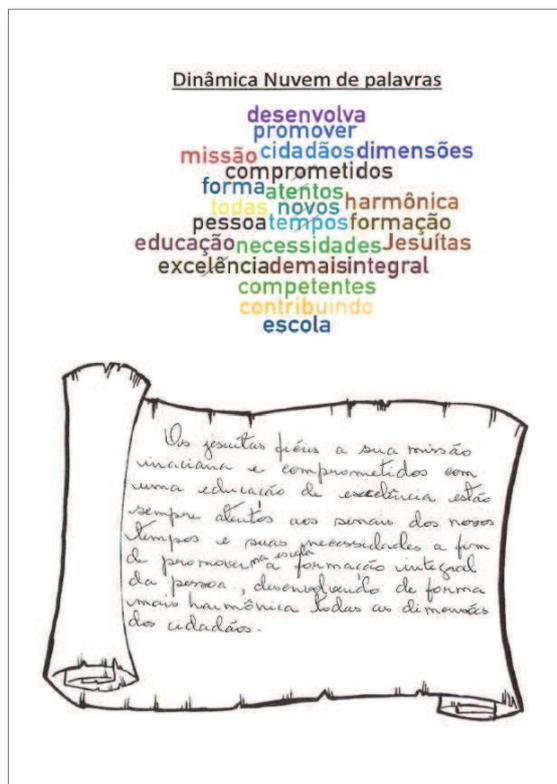 Dinâmica Nuvem de palavras
desenvolva
promover
missão cidadãos dimensões
comprometidos
forma atentos
todas novos harmônica
pessoa tempos formação
educação necessidades Jesuítas
excelência demais integral
competentes
contribuindo
escola
Os jesuítas fiéis a sua missão
inaciana e comprometidos com
uma educação de excelência estão
sempre atentos aos sinais dos novos
tempos e suas necessidades a fim
de promover na escola a formação integral
da pessoa, desenvolvendo de forma
mais harmônica todas as dimensões
dos cidadãos.